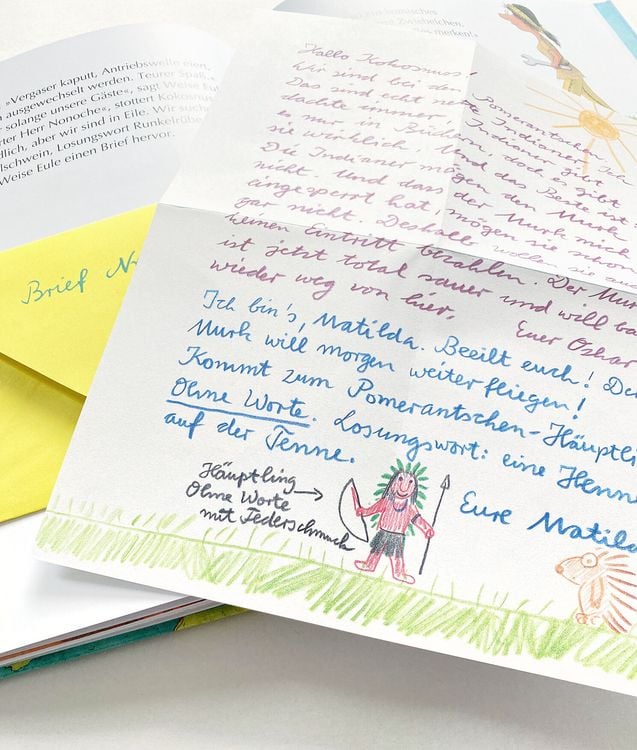 komischen
Zwiebelchen.
merken!
»Vergaser kaputt, Antriebswelle eiert,
ausgewechselt werden. Teurer Spaß
solange unsere Gäste«, sagt Weise
rter Herr Nonoche«, stottert Kokosnu
dlich, aber wir sind in Eile. Wir such
elschwein, Losungswort Runkelrüb
Weise Eule einen Brief hervor.
Brief N
Hallo Kokosnuss!
Wir sind bei den Pomerantschen.
Das sind echt nette Indianer. Ich
dachte immer, Indianer gibt
es nur in Büchern, doch es gibt
sie wirklich! Und das Beste ist:
Die Indianer mögen den Murk
nicht. Und dass der Murk mich
eingesperrt hat, mögen sie schon
gar nicht. Deshalb wollen sie
keinen Eintritt bezahlen. Der Mur
ist jetzt total sauer und will ba
wieder weg von hier. Euer Oskar
Ich bin's, Matilda. Beeilt euch! De
Murk will morgen weiterfliegen!
Kommt zum Pomerantschen-Häuptli
Ohne Worte. Losungswort: eine Henne
auf der Tenne.
Eure Matilda
Häuptling
Ohne Worte
mit Federschmuck